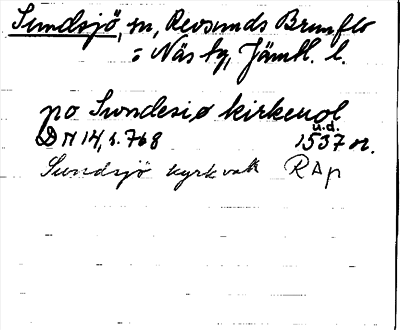 Sundsjö, sn, Revsunds Brunflo
: Näs tg, Jämtl. l.
po Sundesiø kirkeuol
u.d.
DN 14, s. 768 1537 or.
Sundsjö kyrkvall RAp